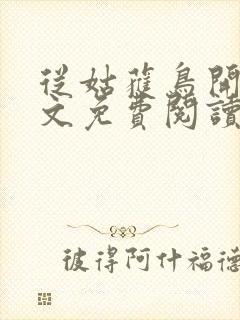 從姑蘿鳥開
文免費閱讀
彼得阿什福德